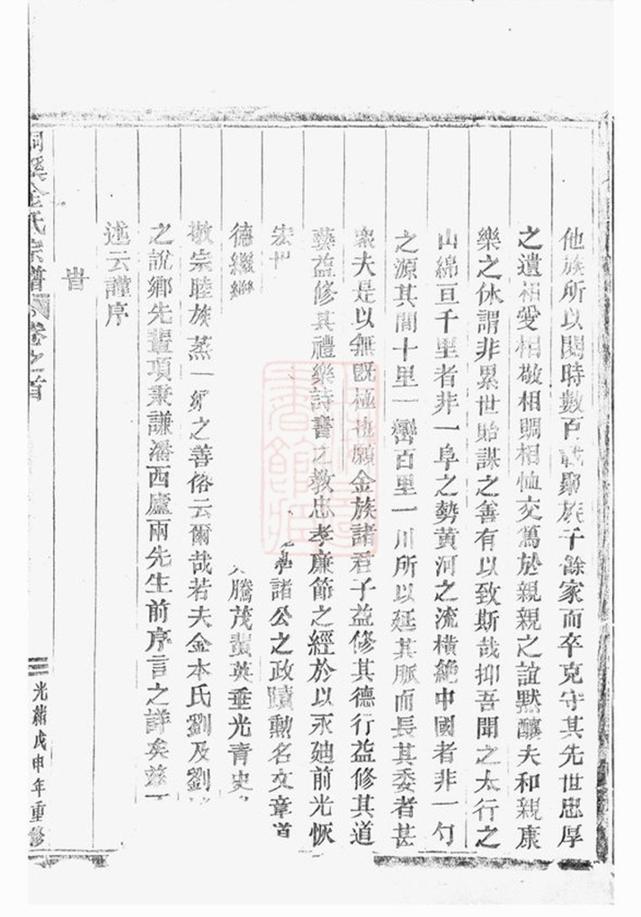 他族所以閱時數百載聚族千餘家而卒克守其先世忠厚
之遺相愛相敬相賙相恤交篤於親親之誼默釀夫和親康
樂之休謂非累世貽謀之善有以致斯哉抑吾聞之太行之
山綿亘千里者非一阜之勢黃河之流橫絶中國者非一勺
之源其間十里一巒百里一川所以延其脈而長其委者甚
衆夫是以無既極也願金族諸君子益修其德行益修其道
藝益修其禮樂詩書之教忠孝廉節之經於以承廸前光恢
宏世 諸公之政蹟勳名文章道
德繼繼 騰茂蜚英垂光青史
敬宗睦族蒸一鄉之善俗云爾哉若夫金本氏劉及劉
之說鄉先輩項秉謙潘西廬兩先生前序言之詳矣茲
述云謹序
旹
桐溪金氏宗譜 卷之首
光緒戊申年重修